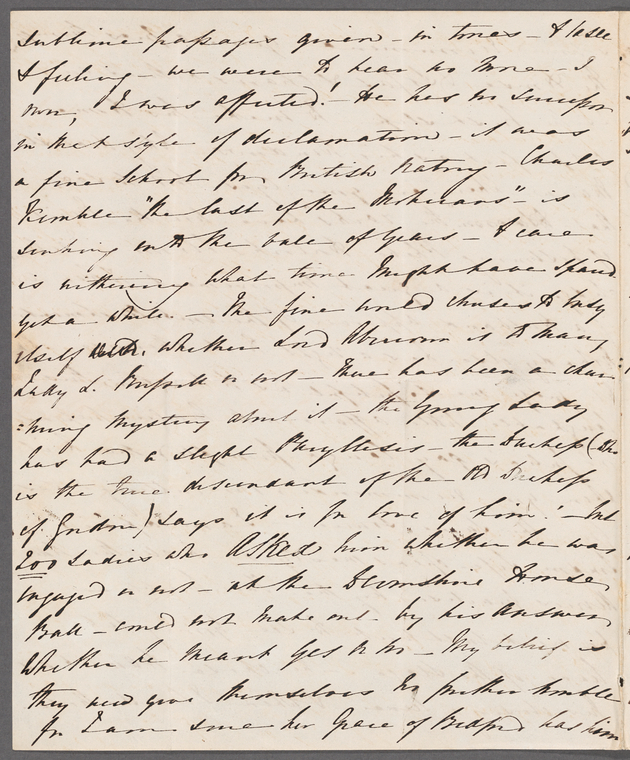 sublime passages given - in tones - & to see
& feeling - we were to hear no more - I
own, I was affected! - He has no successor
in that style of declamation - it was
a fine School for British Oatory - Charles
Kemble "the last of the Mohicans" - is
sinking into the vale of Years - & care
is withering what time might have spared
yet a while. - The fine world chuses to busy
itself with, whether Lord Abercorn is to marry
Lady L. Russell or not - There has been a char
=ming mystery about it - the Young Lady
has had a slight Paryllesis - the Duchess (who
is the true descendant of the Old Duchess
of Gordon) says it is for love of him! - but
200 Ladies who Asked him whether he was
engaged or not - at the Devonshire House
Ball - could not make out - by his answer
Whether he meant Yes or No - My belief is
they need give themselves no further trouble
for I am sure her Grace of Bedford has him